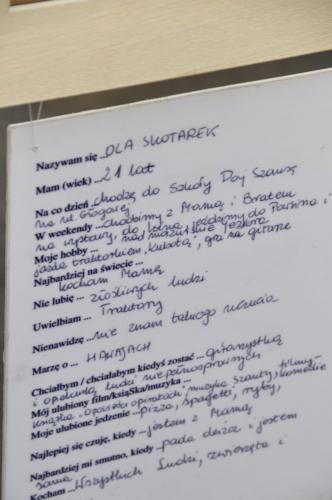 Nazywam się ... OLA SKOTAREK
Mam (wiek) ... 21 lat
Na co dzień ... chodzę do Szkoły Daj Szansę
na ul. Głogowej
W weekendy ... chodzimy z Mamą i Bratem
na wystawy, do kina, jeździmy do Torunia i
nad mazurskie Jeziora
Moje hobby ...
jazda traktorkiem "Kubotą", gra na gitarze
Najbardziej na świecie ...
kocham Mamę
Nie lubię ... złośliwych ludzi
Uwielbiam ... Traktory
Nienawidzę ... nie znam takiego uczucia
Marzę o ... HAWAJACH
Chciałbym / chciałabym kiedyś zostać ... gitarzystką
i opiekunką ludzi niepełnosprawnych
Mój ulubiony film/książka/muzyka ...
książka "Opowieści o piratach", muzyka szanty, filmy -
komedie
Moje ulubione jedzenie ... pizza, spagetti, ryby,
Najlepiej się czuję, kiedy ... jestem z Mamą
Najbardziej mi smutno, kiedy ... pada deszcz i jestem
sama
Kocham ... Wszystkich Ludzi, zwierzęta i